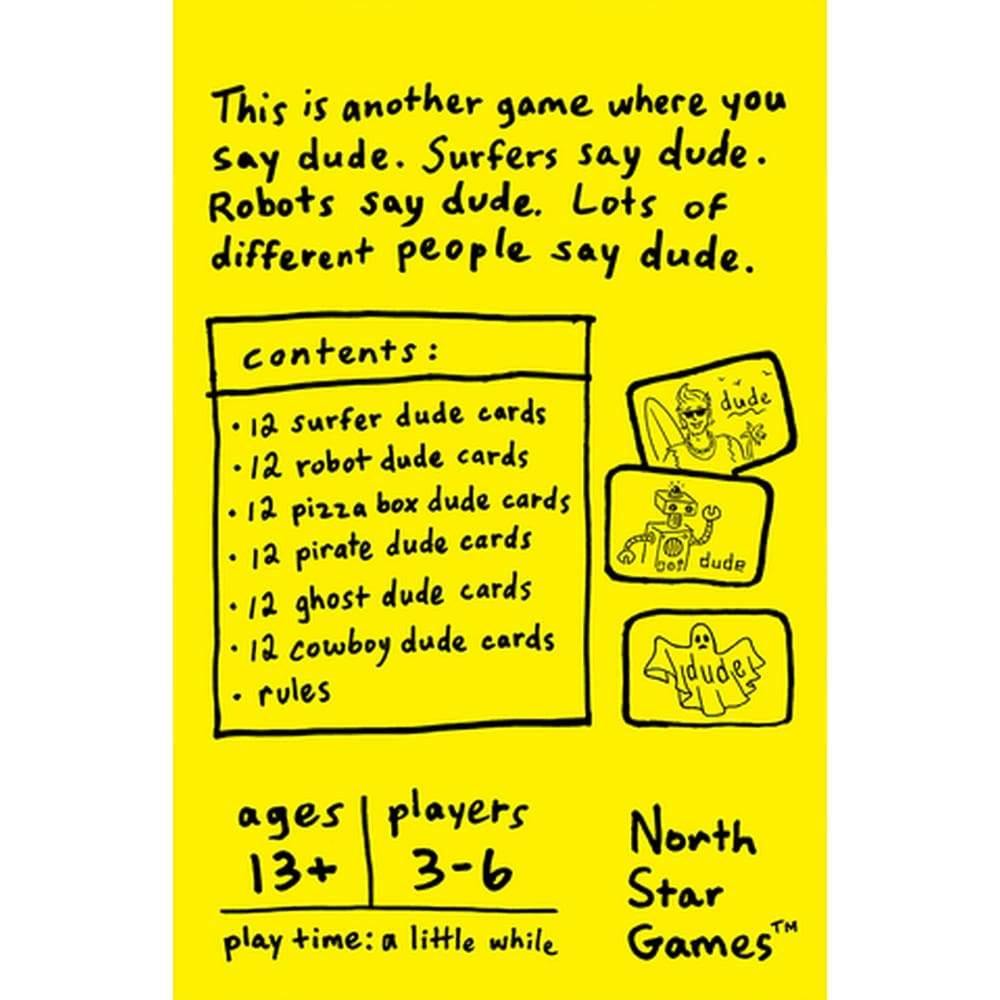 This is another game where you
say dude. Surfers say dude.
Robots say dude. Lots of
different people say dude.
contents:
• 12 surfer dude cards
• 12 robot dude cards
• 12 pizza box dude cards
• 12 pirate dude cards
• 12 ghost dude cards
• 12 cowboy dude cards
• rules
dude
bot dude
dude
ages
13+
players
3-6
play time: a little while
North
Star
Games™